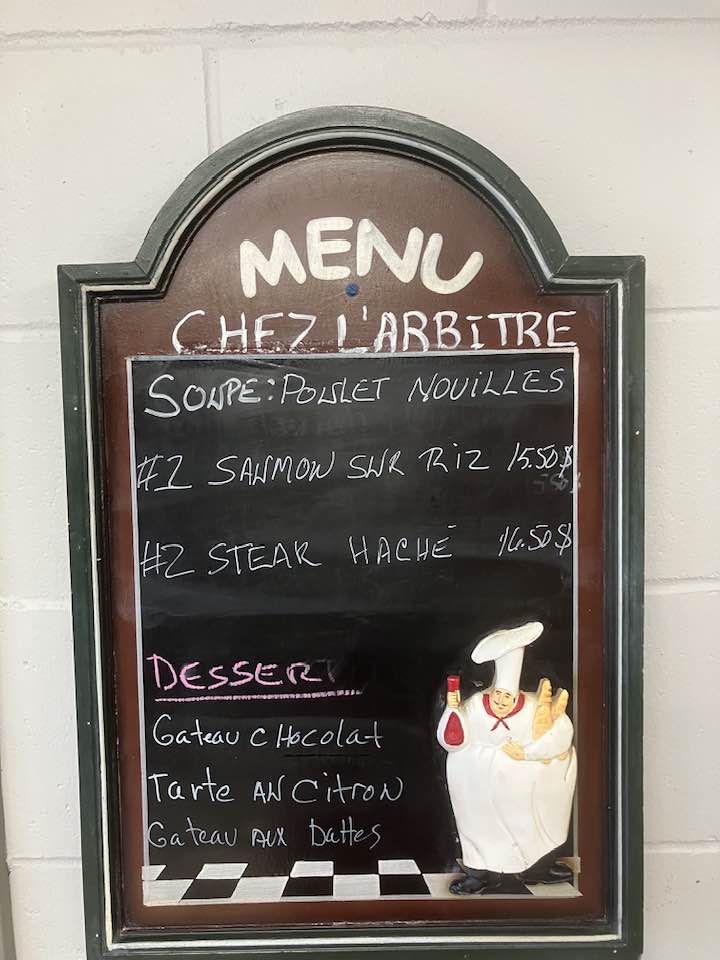 MENU
CHEZ L'ARBITRE
SOUPE: POULET NOUILLES
#1 SAUMON SUR RIZ 15.50$
#2 STEAK HACHÉ 16.50$
DESSERT
Gateau CHocolat
Tarte AU CitroN
Gateau AUX Dattes